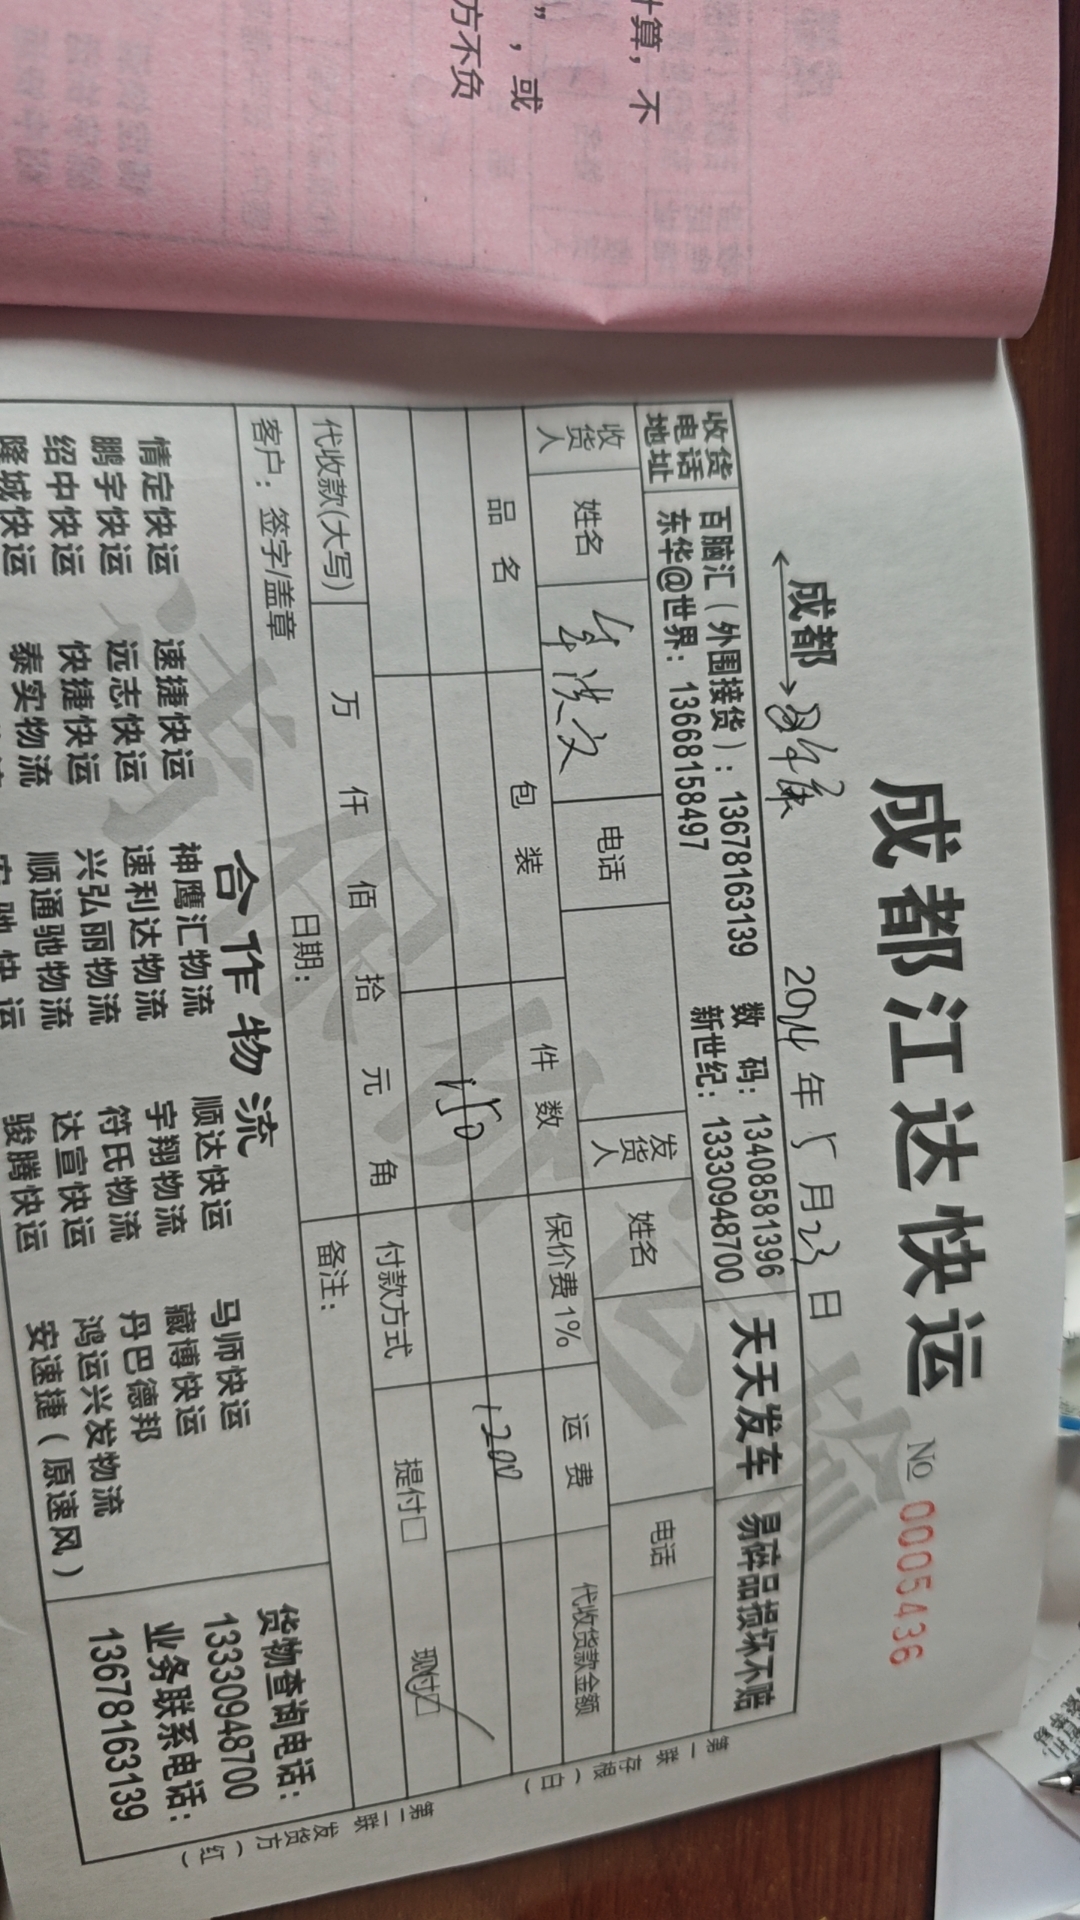 计算，不
”，或
方不负
成都江达快运
№ 0005436
成都
2024年5月23日
收货电话地址
百脑汇（外围接货）：13678163139 数码：13408581396
东华@世界：13668158497 新世纪：13330948700
天天发车
易碎品损坏不赔
收货人 姓名 电话 发货人 姓名 电话
品名 包装 件数 保价费1% 运费 代收货款金额
150 1200
代收款(大写) 万 仟 佰 拾 元 角 付款方式 提付□ 现付□
客户：签字/盖章 日期： 备注：
合作物流
情定快运 速捷快运 神鹰汇物流 顺达快运 马师快运
鹏宇快运 远志快运 速利达物流 宇翔物流 藏博快运
绍中快运 快捷快运 兴弘丽物流 符氏物流 丹巴德邦
隆城快运 泰实物流 顺通驰物流 达宣快运 鸿运兴发物流
安驰快运 骏腾快运 安速捷（原速风）
货物查询电话：
13330948700
业务联系电话：
13678163139
第一联 存根（白）
第二联 发货方（红）